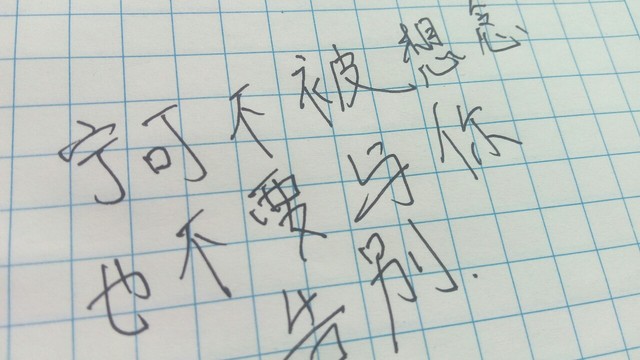 宁可不被想念
也不要与你
告别.